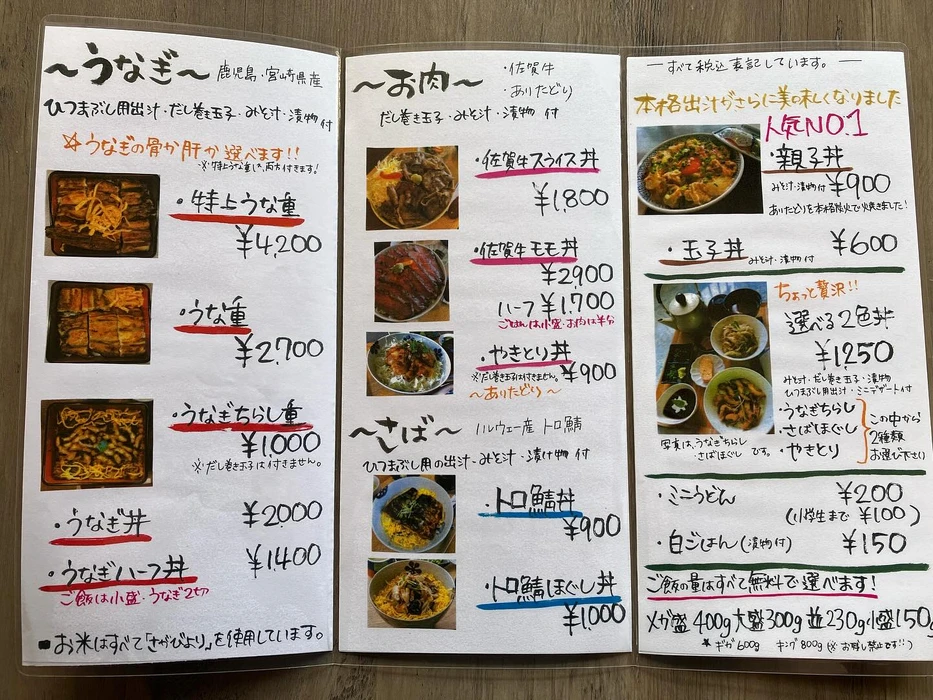 〜うなぎ〜 鹿児島・宮崎県産
ひつまぶし用出汁・だし巻き玉子・みそ汁・漬物付
☆うなぎの骨か肝か選べます!!
※特上うな重は、両方付きます!
・特上うな重
¥4,200
・うな重
¥2,700
・うなぎちらし重
¥1,000
※だし巻き玉子は付きません。
・うなぎ丼 ¥2000
・うなぎハーフ丼 ¥1400
ご飯は小盛・うなぎ2切
■お米はすべて「さがびより」を使用しています。
〜お肉〜 ・佐賀牛
・ありたどり
だし巻玉子・みそ汁・漬物 付
・佐賀牛スライス丼
¥1,800
・佐賀牛モモ丼
¥2900
ハーフ ¥1,700
ごはんは小盛・お肉は半分
・やきとり丼
※だし巻き玉子は付きません。 ¥900
〜ありたどり〜
〜さば〜 ノルウェー産 トロ鯖
ひつまぶし用の出汁・みそ汁・漬け物 付
・トロ鯖丼
¥900
・トロ鯖ほぐし丼
¥1,000
― すべて税込表記しています。 ―
本格出汁がさらに美の味しくなりました
人気NO.1
・親子丼
みそ汁・漬物付 ¥900
ありたどりを本格炭火で焼きました!
・玉子丼 みそ汁・漬物付 ¥600
ちょっと贅沢!!
選べる2色丼
¥1250
みそ汁・だし巻き玉子・漬物
ひつまぶし用出汁・ミニデザート付
・うなぎちらし
・さばほぐし
・やきとり
この中から
2種類
お選び下さい
写真は、うなぎちらし
・さばほぐし です。
・ミニうどん ¥200
(小学生まで ¥100)
・白ごはん(漬物付) ¥150
ご飯の量はすべて無料で選べます!
メガ盛400g大盛300g並230g小盛150g
★ギガ600g キング800g(※お残し禁止です!!)